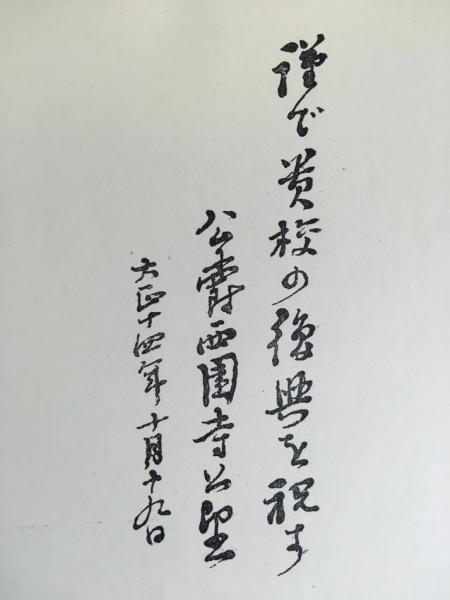 謹で貴校の復興を祝す
公爵西園寺公望
大正十四年十月十九日